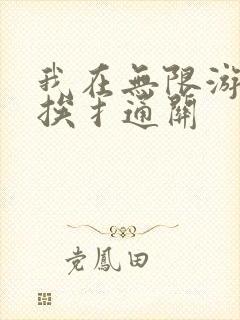 我在無限游
挨扌通關
党鳳田